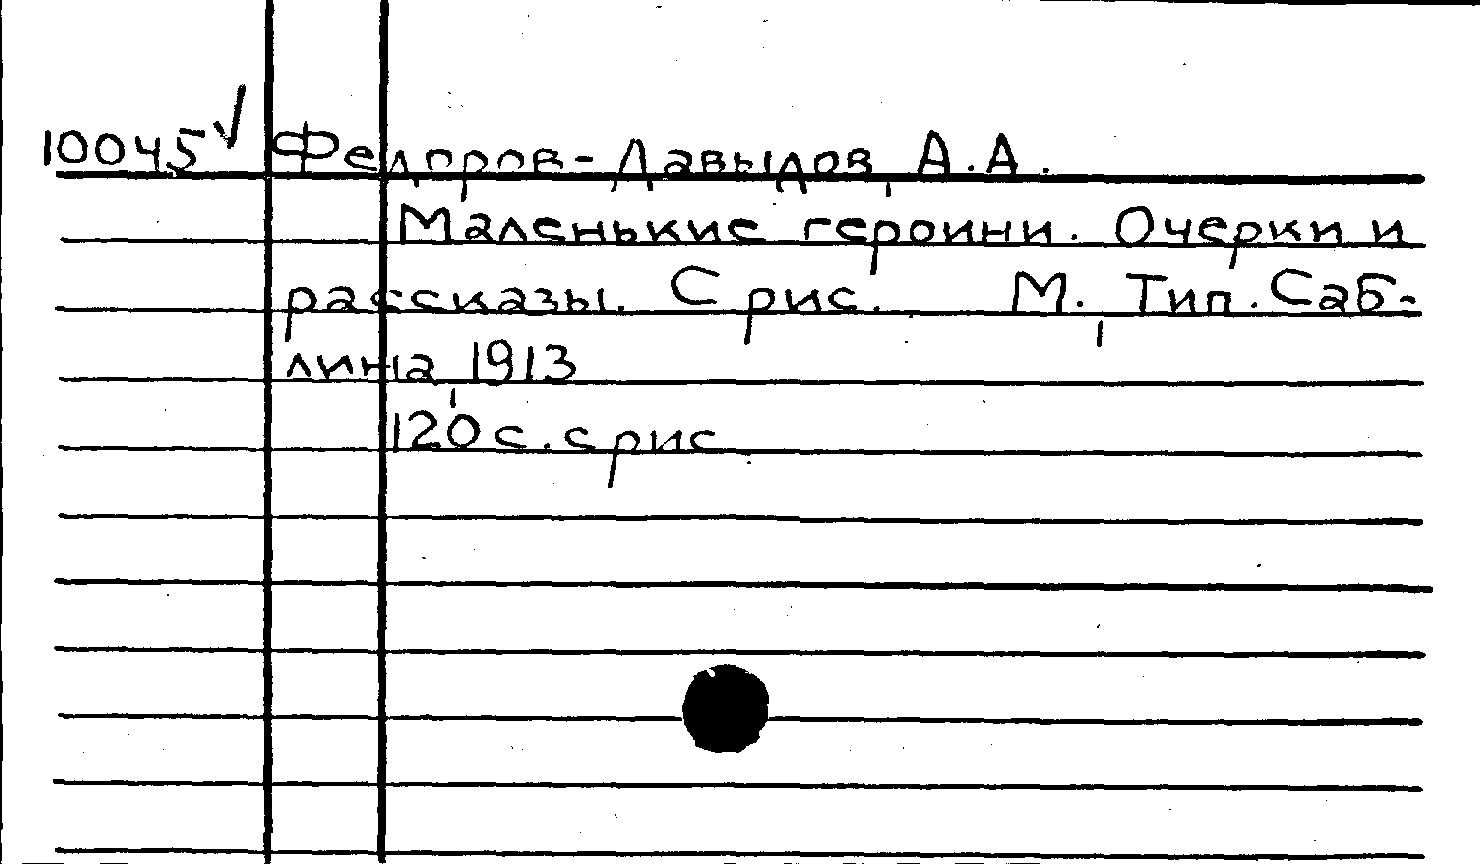 10045 √ Федоров-Давыдов, А.А.
Маленькие героини. Очерки и
рассказы. С рис. М., Тип. Саб-
лина, 1913
120 с. с рис.